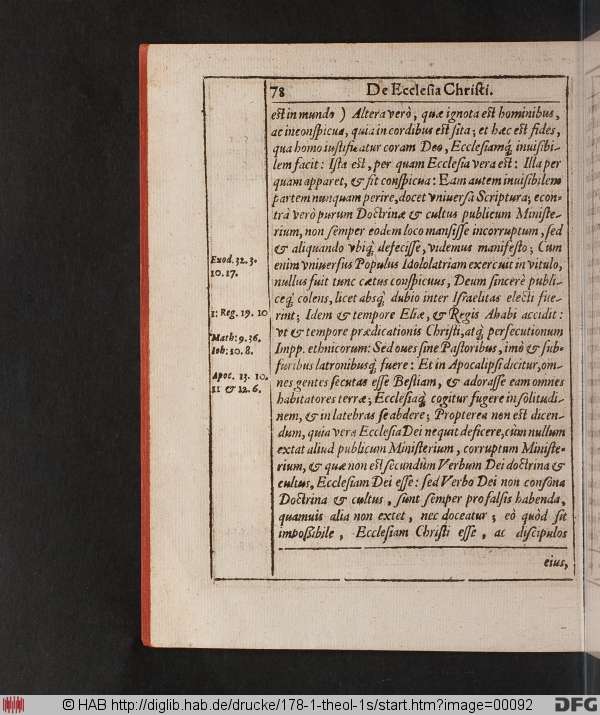 78 De Ecclesia Christi.
est in mundo ) Altera verò, quæ ignota est hominibus,
ac inconspicua, quia in cordibus est sita; et hæc est fides,
qua homo iustificatur coram Deo, Ecclesiamq́ inuisibi-
lem facit: Ista est, per quam Ecclesia vera est: Illa per
quam apparet, & fit conspicua: Eam autem inuisibilem
partem nunquam perire, docet vniuersa Scriptura; econ-
trà verò purum Doctrinæ & cultus publicum Ministe-
rium, non semper eodem loco mansisse incorruptum, sed
& aliquando vbiq́ defecisse, videmus manifesto; Cum
enim vniuersus Populus Idololatriam exercuit in vitulo,
nullus fuit tunc cætus conspicuus, Deum sincerè publi-
ceq́ colens, licet absq́ dubio inter Israelitas electi fue-
rint; Idem & tempore Eliæ, & Regis Ahabi accidit:
vt & tempore prædicationis Christi, atq́ persecutionum
Impp. ethnicorum: Sed oues sine Pastoribus, imò & sub-
furibus latronibusq́ fuere: Et in Apocalipsi dicitur, om-
nes gentes secutas esse Bestiam, & adorasse eam omnes
habitatores terræ; Ecclesiaq́ cogitur fugere in solitudi-
nem, & in latebras se abdere; Propterea non est dicen-
dum, quia vera Ecclesia Dei nequit deficere, cùm nullum
extat aliud publicum Ministerium, corruptum Ministe-
rium, & quæ non est secundùm Verbum Dei doctrina &
cultus, Ecclesiam Dei esse: sed Verbo Dei non consona
Doctrina & cultus, sunt semper pro falsis habenda,
quamuis alia non extet, nec doceatur; eò quòd sit
impossibile, Ecclesiam Christi esse, ac discipulos
eius,
Exod. 32. 3.
10. 17.
1: Reg. 19. 10
Math: 9. 36.
Ioh: 10. 8.
Apoc. 13. 10.
11 & 12. 6.
© HAB http://diglib.hab.de/drucke/178-1-theol-1s/start.htm?image=00092
DFG